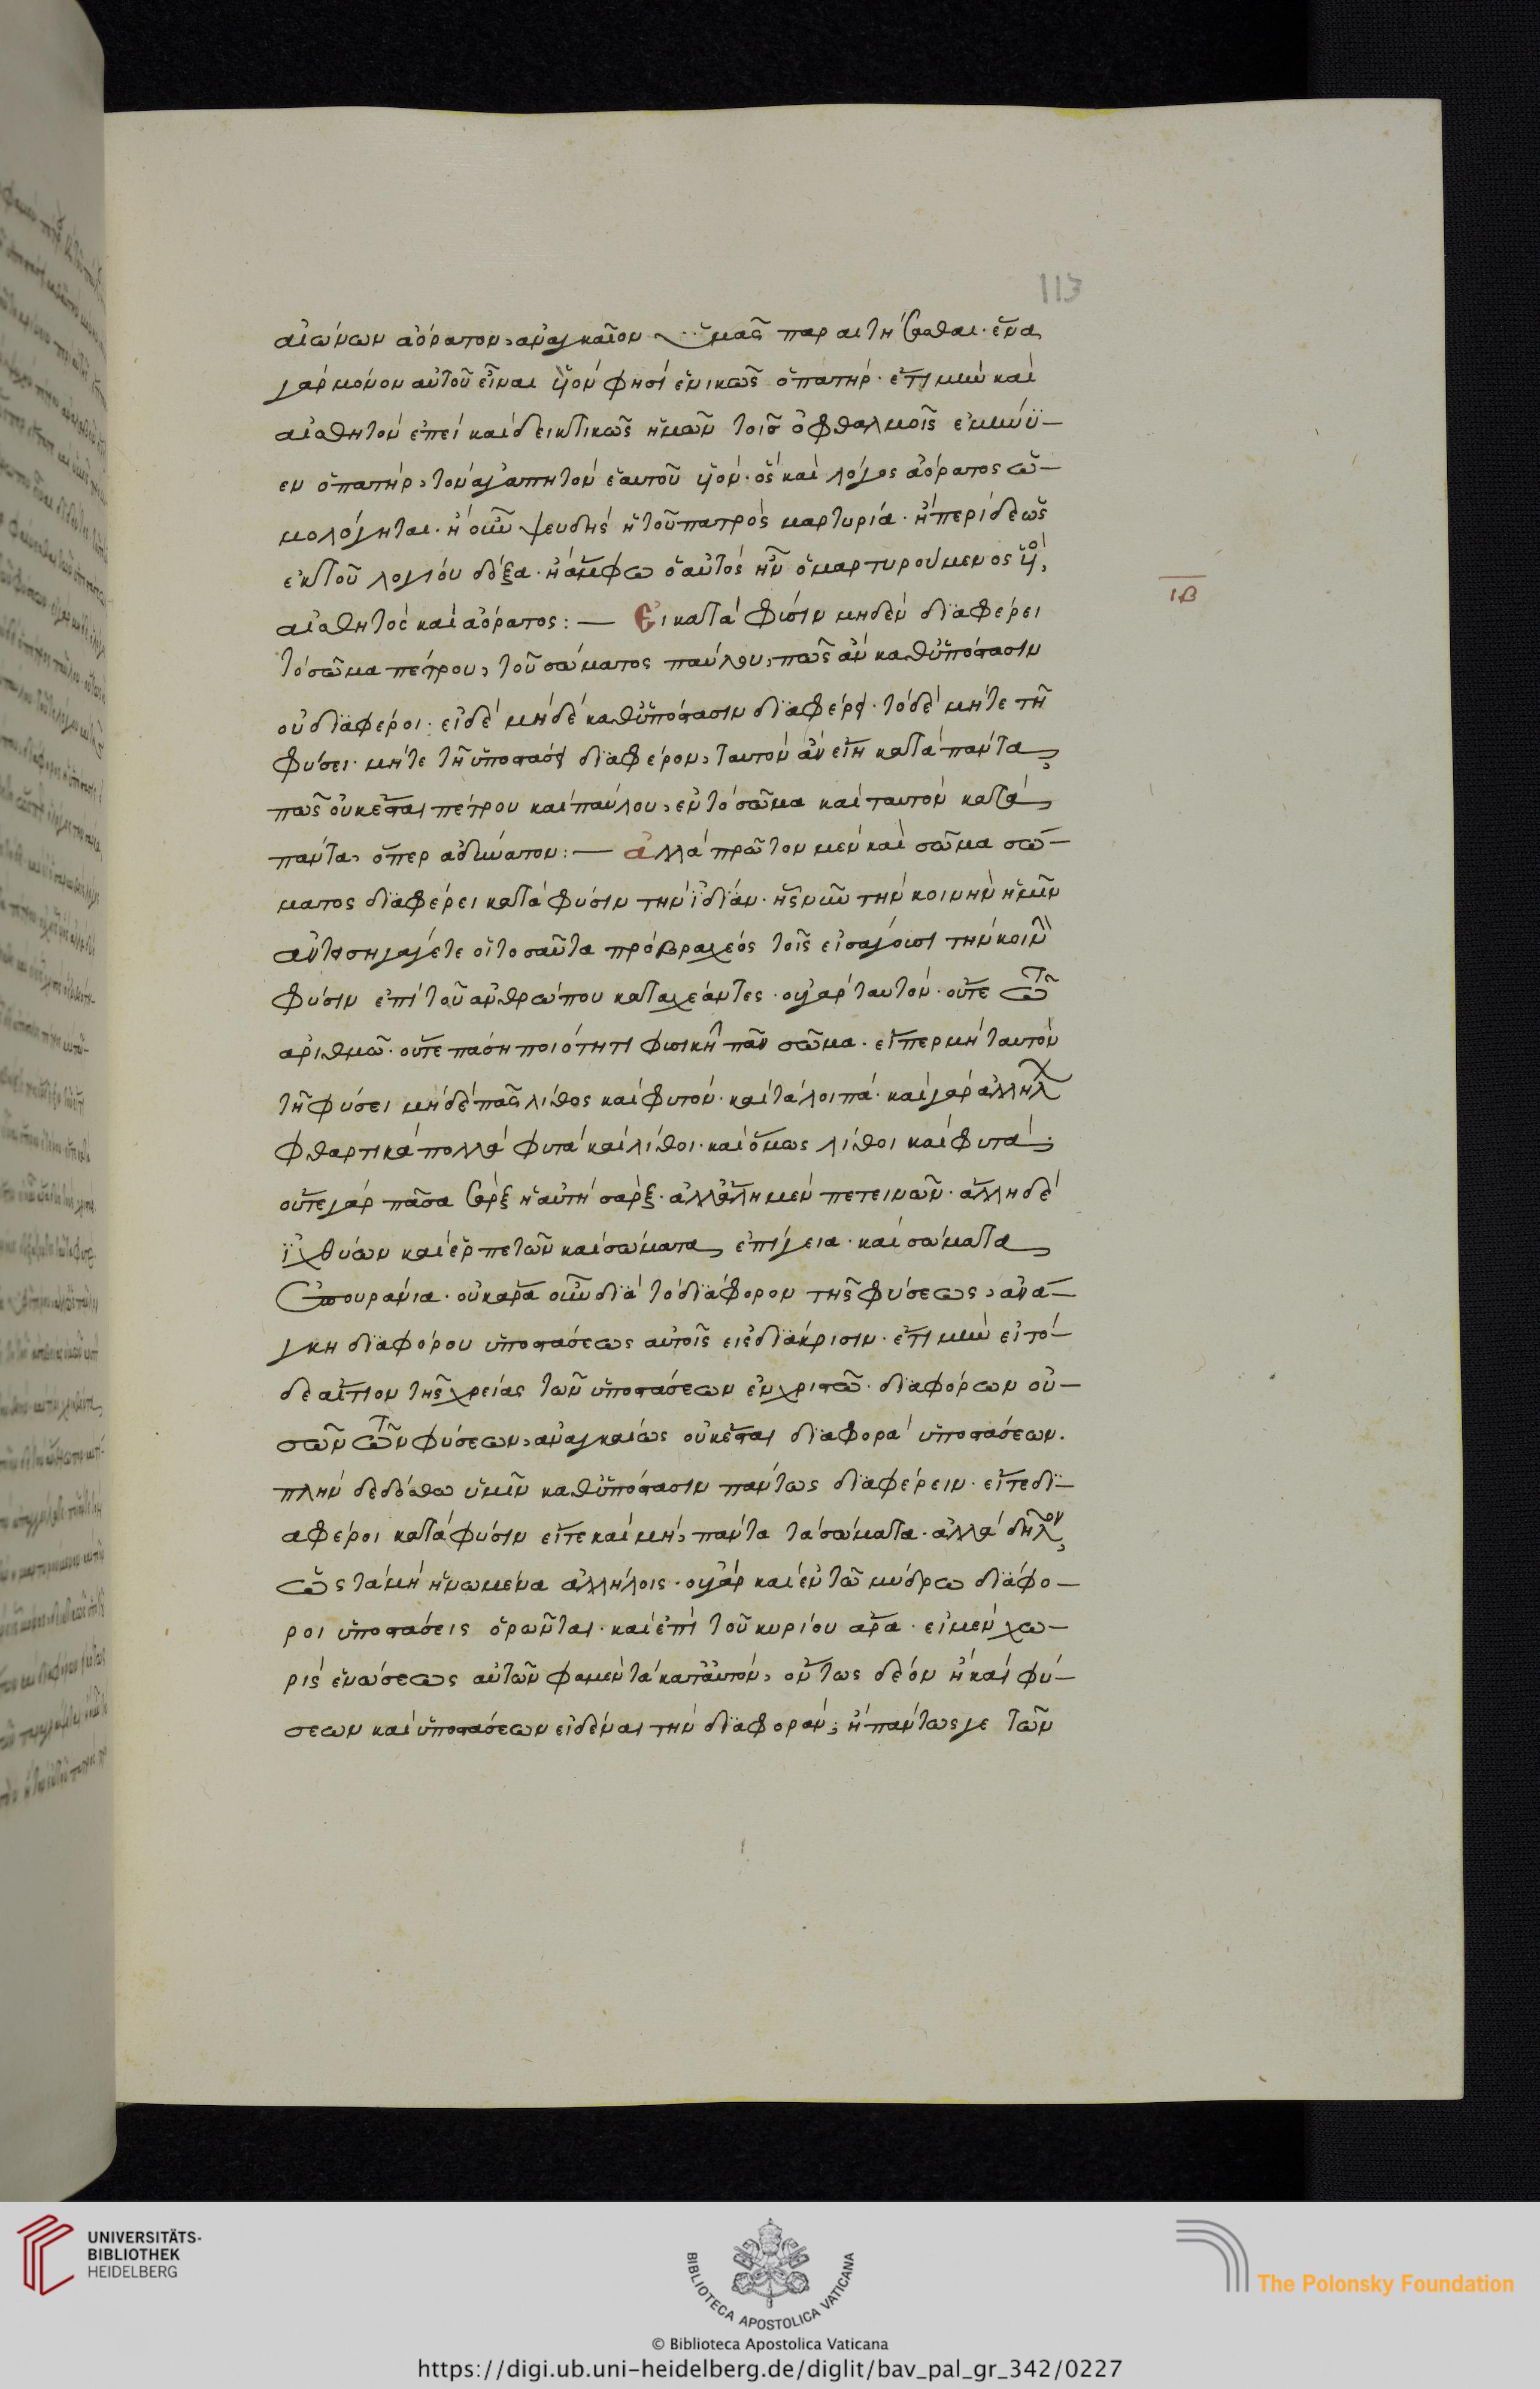 113
αἰώνων ἀόρατον, ἀναγκαῖον ὑμᾶς παραιτήσασθαι· ἕνα
γὰρ μόνον αὐτοῦ εἶναι υἱόν φησὶ ἑνικῶς ὁ πατήρ· ἔτι μὴν καὶ
αἰσθητὸν ἐπεὶ καὶ δεικτικῶς ἡμῶν τοῖς ὀφθαλμοῖς ἐμήνυ-
εν ὁ πατήρ, τὸν ἀγαπητὸν ἑαυτοῦ υἱόν· ὃς καὶ λόγος ἀόρατος ὡ-
μολόγηται· ἢ οὖν ψευδὴς ἡ τοῦ πατρὸς μαρτυρία· ἢ περιδεὼς
ἐκ τοῦ λογίου δόξα· ἢ ἄμφω ὁ αὐτὸς ἦν ὁ μαρτυρούμενος υἱὸς,
αἰσθητὸς καὶ ἀόρατος: — Εἰ κατὰ φύσιν μηδὲν διαφέρει
τὸ σῶμα πέτρου, τοῦ σώματος παύλου, πῶς ἂν καθ' ὑπόστασιν
οὐ διαφέροι· εἰ δὲ μηδὲ καθ' ὑπόστασιν διαφέρει· τὸ δὲ μήτε τῇ
φύσει· μήτε τῇ ὑποστάσει διαφέρον, ταυτὸν ἂν εἴη κατὰ πάντα,
πῶς οὐκ ἔσται πέτρου καὶ παύλου, ἓν τὸ σῶμα καὶ ταυτὸν κατὰ
πάντα, ὅπερ ἀδύνατον: — ἀλλὰ πρῶτον μὲν καὶ σῶμα σώ-
ματος διαφέρει κατὰ φύσιν τὴν ἰδίαν·
φύσιν ἐπὶ τοῦ ἀνθρώπου καταχέαντες· οὐ γὰρ ταυτὸν· οὔτε τῷ
ἀριθμῷ· οὔτε πάσῃ ποιότητι φυσικῇ πᾶν σῶμα· εἴπερ μὴ ταυτὸν
τῇ φύσει μηδὲ πᾶς λίθος καὶ φυτόν· καὶ τὰ λοιπά· καὶ γὰρ ἀλλήλων
φθαρτικὰ πολλὰ φυτὰ καὶ λίθοι· καὶ ὅμως λίθοι καὶ φυτά·
οὔτε γὰρ πᾶσα σὰρξ ἡ αὐτὴ σάρξ· ἀλλ' ἄλλη μὲν πετεινῶν· ἄλλη δὲ
ἰχθύων καὶ ἑρπετῶν καὶ σώματα, ἐπίγεια· καὶ σώματα
ἐπουράνια· οὐκ ἄρα οὖν διὰ τὸ διάφορον τῆς φύσεως, ἀνά-
γκη διαφόρου ὑποστάσεως αὐτοῖς εἰς διάκρισιν· ἔτι μὴν εἰ τό-
δε αἴτιον τῆς χρείας τῶν ὑποστάσεων ἐν χριστῷ· διαφόρων οὐ-
σῶν τῶν φύσεων, ἀναγκαίως οὐκ ἔσται διαφορὰ ὑποστάσεων.
πλὴν δεδόσθω ὑμῖν καθ' ὑπόστασιν πάντως διαφέρειν· εἴτε δι-
αφέροι κατὰ φύσιν εἴτε καὶ μή, πάντα τὰ σώματα· ἀλλὰ δῆλον,
ὡς τὰ μὴ ἡνωμένα ἀλλήλοις· οὐ γὰρ καὶ ἐν τῷ μύδρω διάφο-
ροι ὑποστάσεις ὁρῶνται· καὶ ἐπὶ τοῦ κυρίου ἄρα· εἰ μὲν χω-
ρὶς ἑνώσεως αὐτῶν φαμὲν τὰ κατ' αὐτόν, ὄντως δέον ἢ καὶ φύ-
σεων καὶ ὑποστάσεων εἰδέναι τὴν διαφοράν; ἢ πάντως γε τῶν
ιβ
UNIVERSITÄTS-
BIBLIOTHEK
HEIDELBERG
BIBLIOTECA APOSTOLICA VATICANA
© Biblioteca Apostolica Vaticana
The Polonsky Foundation
https://digi.ub.uni-heidelberg.de/diglit/bav_pal_gr_342/0227